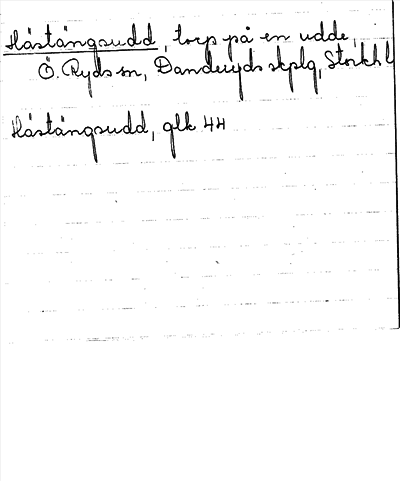 Håstängsudd, torp på en udde,
Ö. Ryds sn, Danderyds skplg, Stockh l
Håstängsudd, glk 44